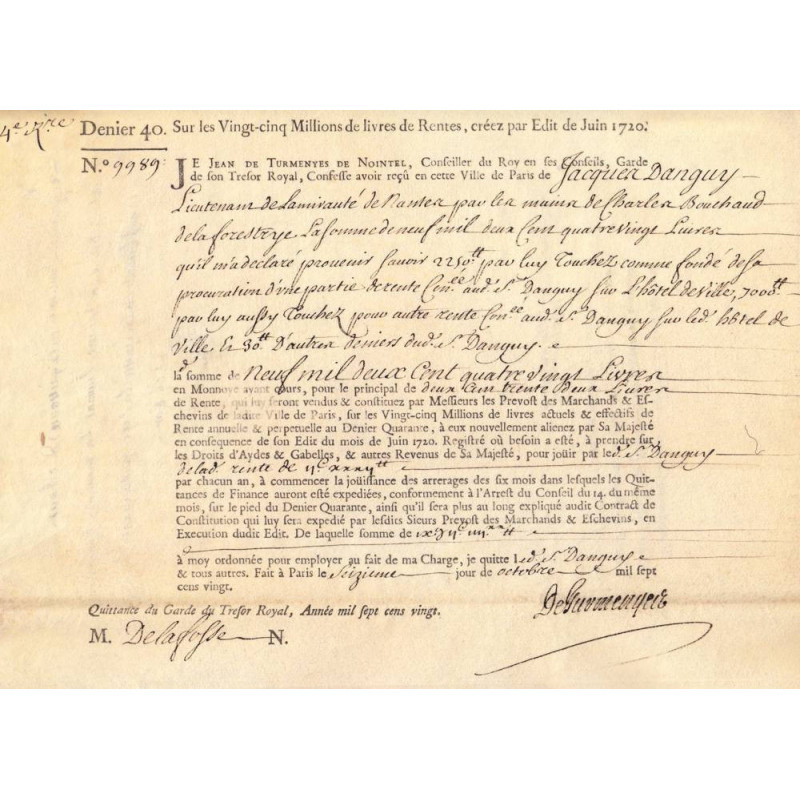 4e. Rre
Denier 40. Sur les Vingt-cinq Millions de livres de Rentes, créez par Edit de Juin 1720.
N.o 9989.
JE JEAN DE TURMENYES DE NOINTEL, Conseiller du Roy en ses Conseils, Garde
de son Tresor Royal, Confesse avoir reçû en cette Ville de Paris de Jacques Danguy
Lieutenant de Lamirauté de Nantes par les mains de Charles Bouchaud
de la forestrye La somme de neuf mil deux Cent quatre vingt Livres
qu'il m'a declaré prouenir sauoir 2250tt par luy Touchez comme fondé de sa
procuration d'vne partie de rente Con.ée aud. Sr. Danguy sur L'hôtel de Ville, 7000tt
par luy aussy Touchez pour autre rente Con.ée aud. Sr. Danguy sur led. hôtel de
Ville Et 30tt D'autres deniers dud. Sr. Danguy.
la somme de Neuf mil deux Cent quatre vingt Livres
en Monnoye ayant cours, pour le principal de deux Cent trente deux Livres
de Rente, qui luy seront vendus & constituez par Messieurs les Prevost des Marchands & Es-
chevins de ladite Ville de Paris, sur les Vingt-cinq Millions de livres actuels & effectifs de
Rente annuelle & perpetuelle au Denier Quarante, à eux nouvellement alienez par Sa Majesté
en consequence de son Edit du mois de Juin 1720. Registré où besoin a esté, à prendre sur
les Droits d'Aydes & Gabelles, & autres Revenus de Sa Majesté, pour jouir par led. Sr. Danguy
de lad. rente de ijc xxxijtt
par chacun an, à commencer la jouissance des arrerages des six mois dans lesquels les Quit-
tances de Finance auront esté expediées, conformement à l'Arrest du Conseil du 14. du même
mois, sur le pied du Denier Quarante, ainsi qu'il sera plus au long expliqué audit Contract de
Constitution qui luy sera expedié par lesdits Sieurs Prevost des Marchands & Eschevins, en
Execution dudit Edit. De laquelle somme de ixm ijc iiijxx tt
à moy ordonnée pour employer au fait de ma Charge, je quitte led. Sr. Danguy
& tous autres. Fait à Paris le Seizieme jour de octobre mil sept
cens vingt.
DeTurmenyes
Quittance du Garde du Tresor Royal, Année mil sept cens vingt.
M. Delafosse N.